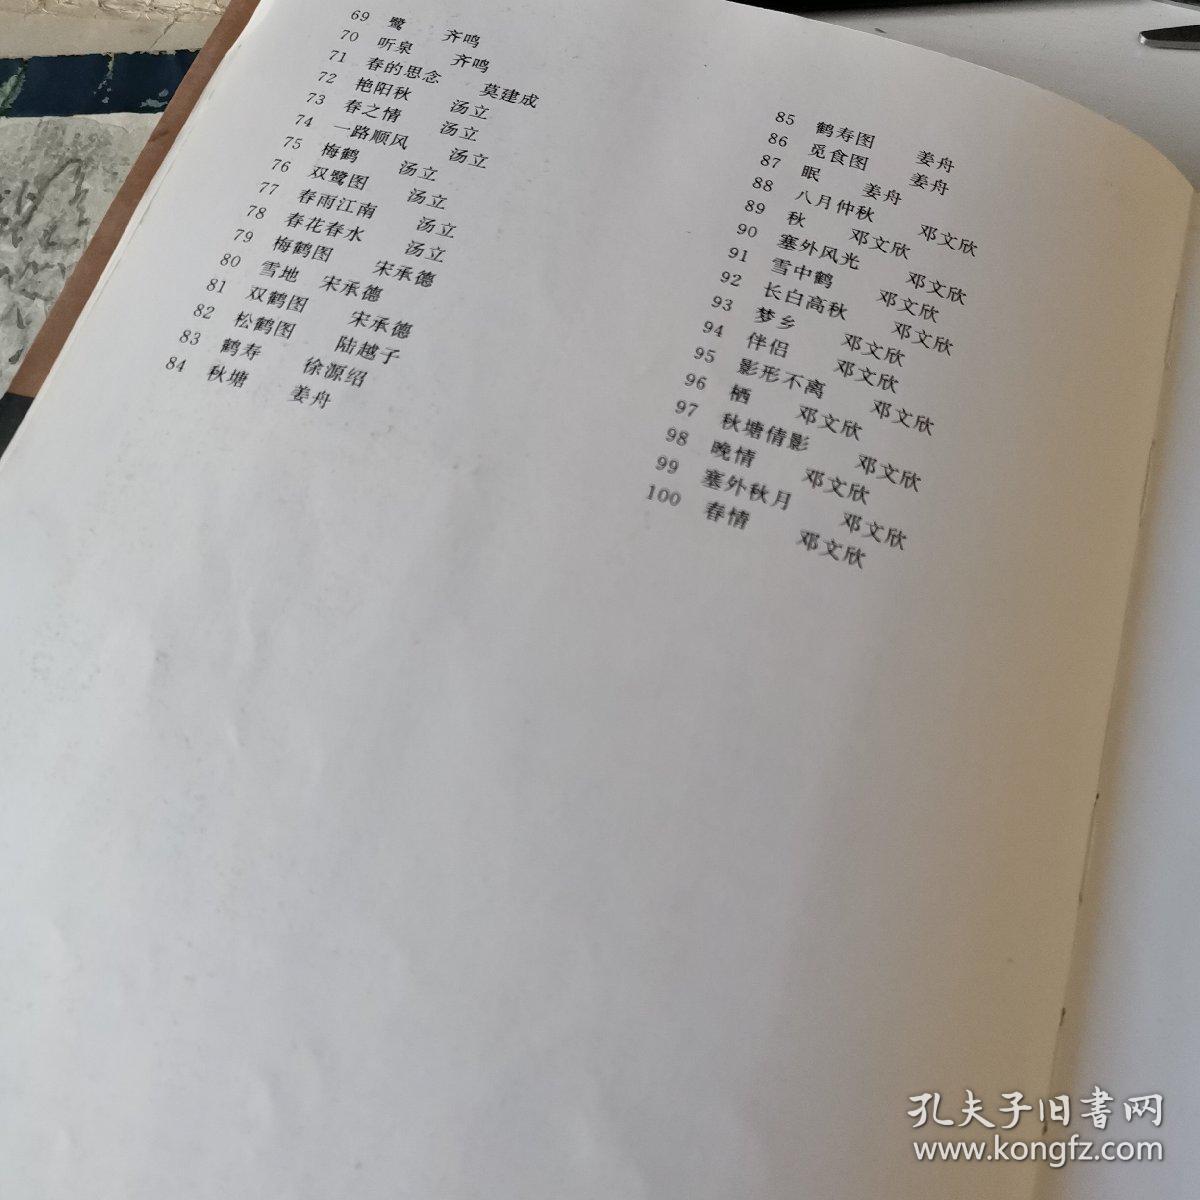 69 鹭 齐鸣
70 听泉 齐鸣
71 春的思念 莫建成
72 艳阳秋 汤立
73 春之情 汤立
74 一路顺风 汤立
75 梅鹤 汤立
76 双鹭图 汤立
77 春雨江南 汤立
78 春花春水 汤立
79 梅鹤图 宋承德
80 雪地 宋承德
81 双鹤图 宋承德
82 松鹤图 陆越子
83 鹤寿 徐源绍
84 秋塘 姜舟
85 鹤寿图 姜舟
86 觅食图 姜舟
87 眠 姜舟
88 八月仲秋 邓文欣
89 秋 邓文欣
90 塞外风光 邓文欣
91 雪中鹤 邓文欣
92 长白高秋 邓文欣
93 梦乡 邓文欣
94 伴侣 邓文欣
95 影形不离 邓文欣
96 栖 邓文欣
97 秋塘倩影 邓文欣
98 晚情 邓文欣
99 塞外秋月 邓文欣
100 春情 邓文欣
孔夫子旧书网
www.kongfz.com